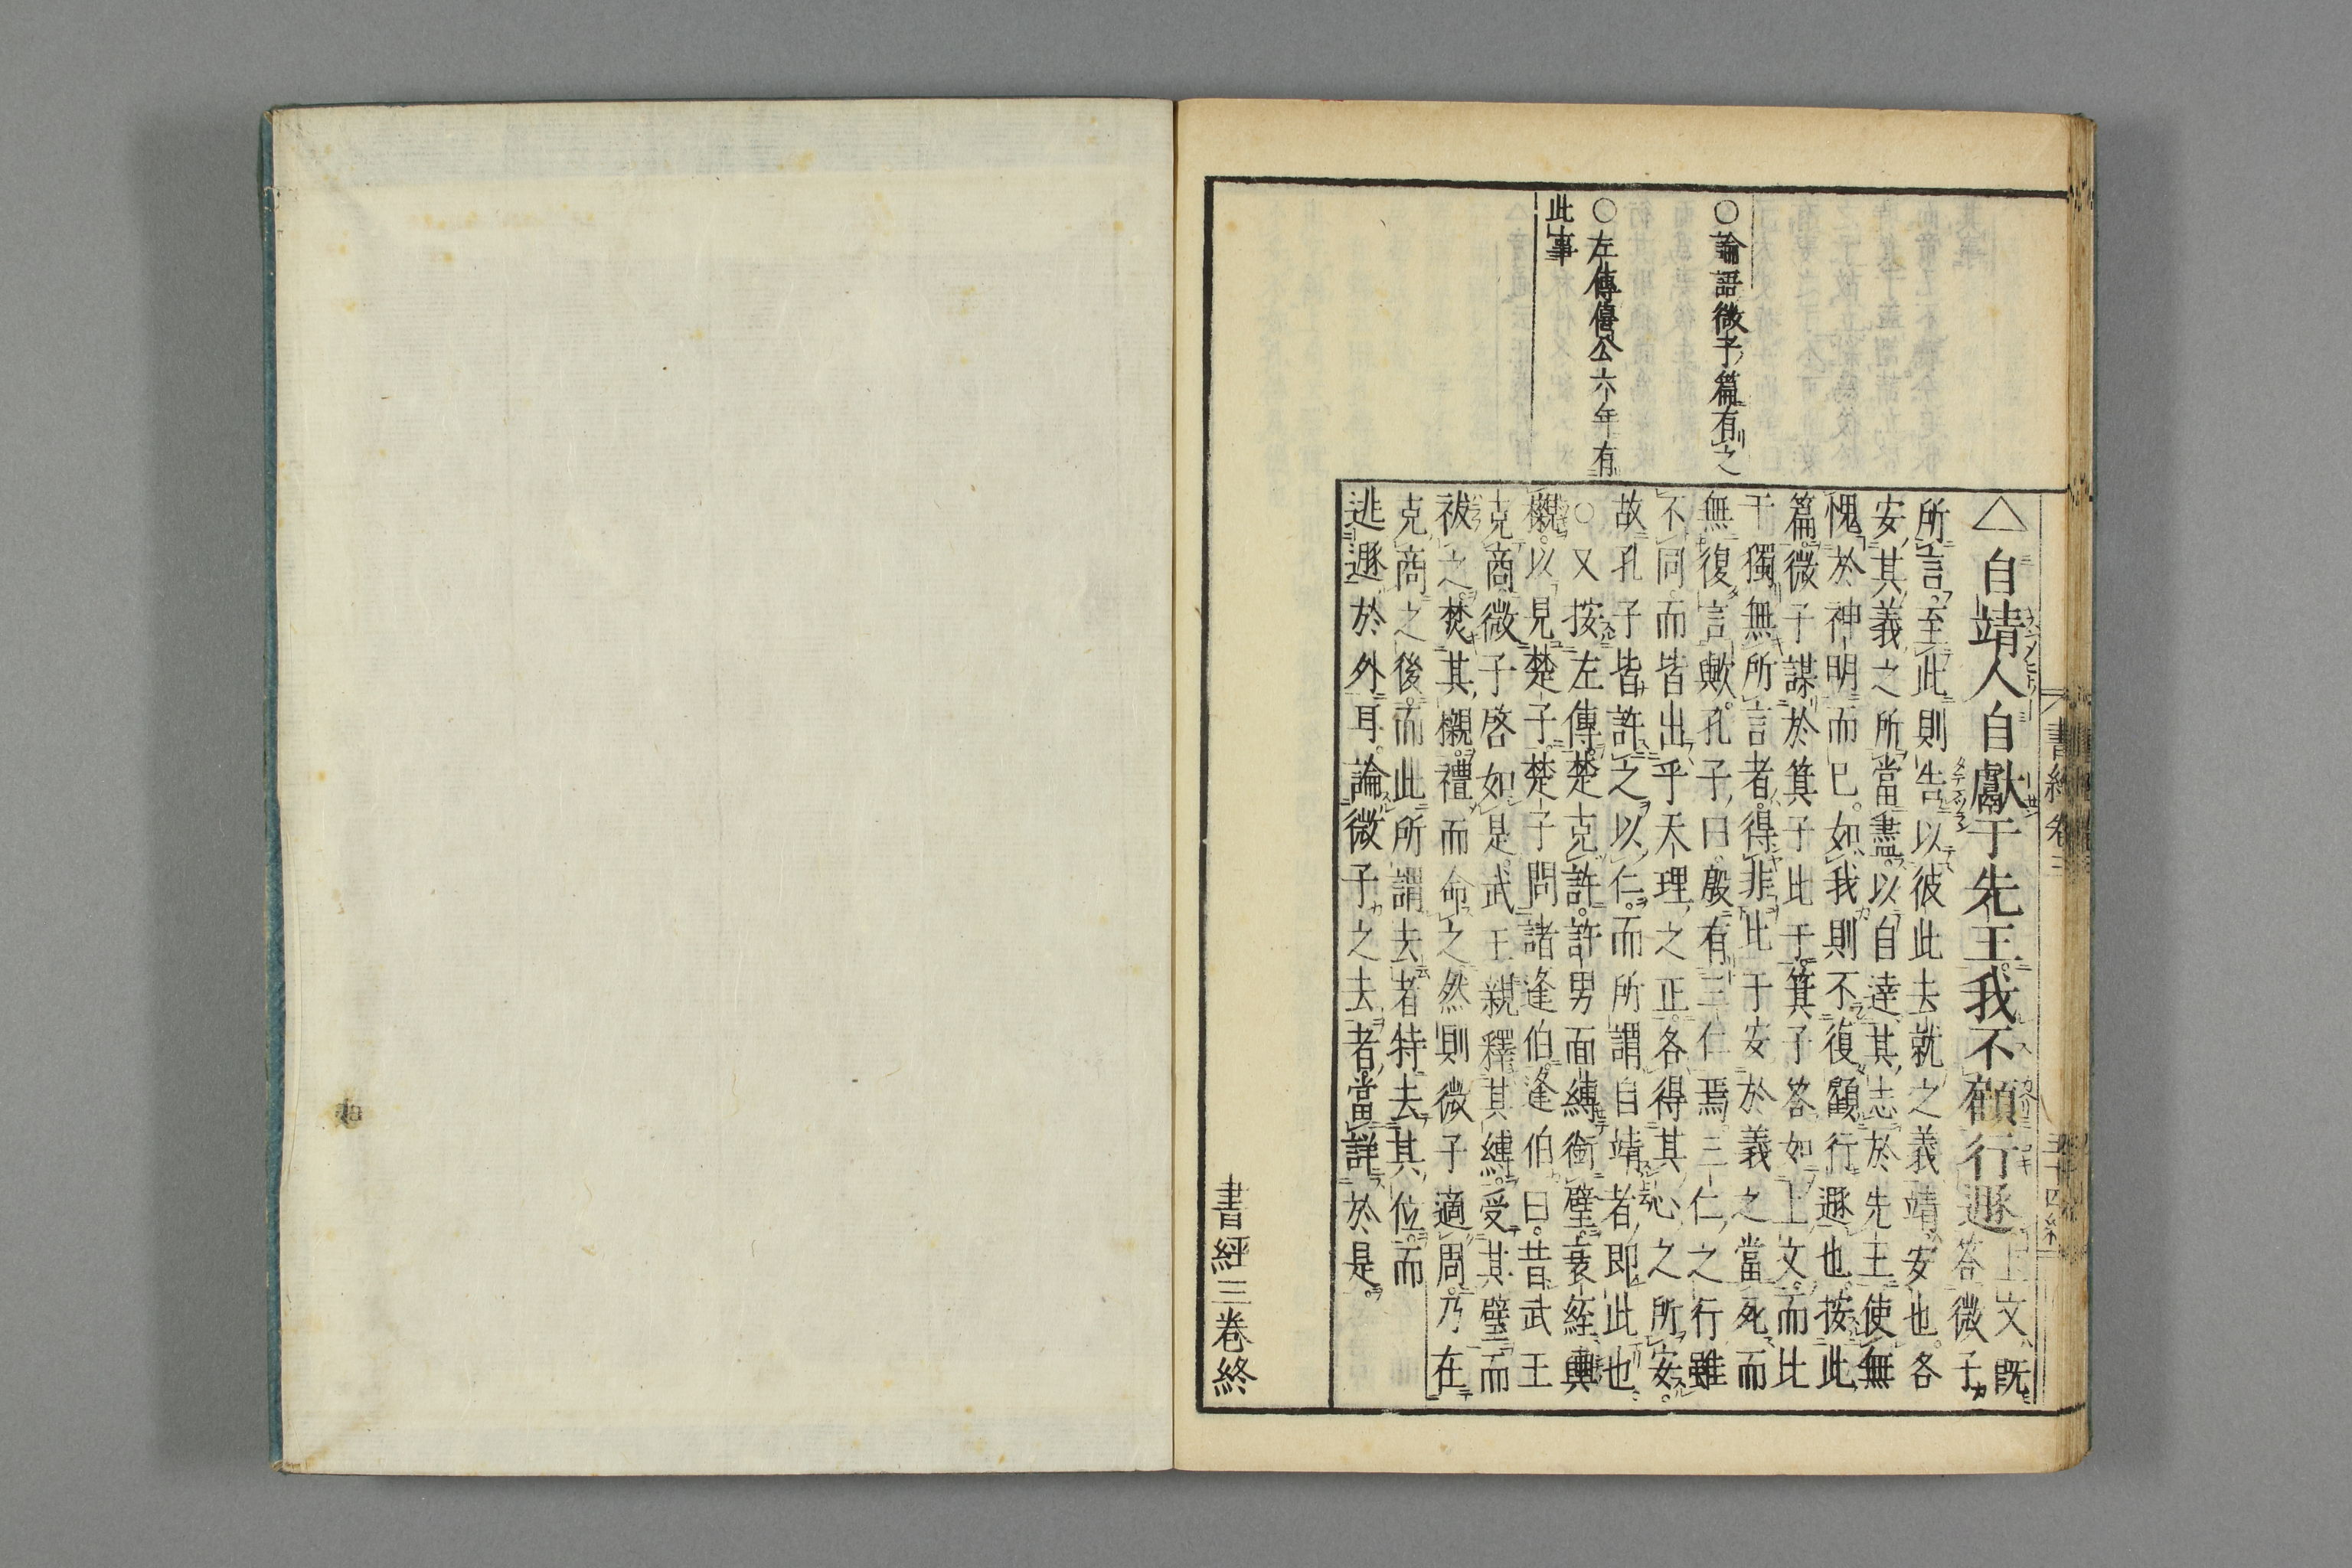 ○論語微子篇有之
○左傳僖公六年有
此事
△自靖人自獻于先王我不顧行遯上文既
答微子
所言至此則告以彼此去就之義靖安也各
安其義之所當盡以自達其志於先王使無
愧於神明而已如我則不復顧行遯也按此
篇微子謀於箕子比干箕子答如上文而比
干獨無所言者得非比干安於義之當死而
無復言歟孔子曰殷有三仁焉三仁之行雖
不同而皆出乎天理之正各得其心之所安
故孔子皆許之以仁而所謂自靖者即此也
○又按左傳楚克許許男面縛銜璧衰絰輿
櫬以見楚子楚子問諸逢伯逢伯曰昔武王
克商微子啓如是武王親釋其縛受其璧而
祓之焚其櫬禮而命之然則微子適周乃在
克商之後而此所謂去者特去其位而
逃遯於外耳論微子之去者當詳於是
書經三卷終